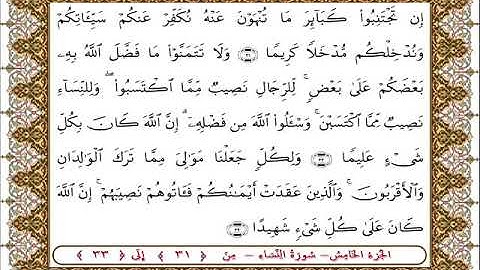 إِن تَجْتَنِبُوا۟ كَبَآئِرَ مَا تُنْهَوْنَ عَنْهُ نُكَفِّرْ عَنكُمْ سَيِّـَٔاتِكُمْ
وَنُدْخِلْكُم مُّدْخَلًا كَرِيمًا ﴿٣١﴾ وَلَا تَتَمَنَّوْا۟ مَا فَضَّلَ ٱللَّهُ بِهِۦ
بَعْضَكُمْ عَلَىٰ بَعْضٍ ۚ لِّلرِّجَالِ نَصِيبٌ مِّمَّا ٱكْتَسَبُوا۟ ۖ وَلِلنِّسَآءِ
نَصِيبٌ مِّمَّا ٱكْتَسَبْنَ ۚ وَسْـَٔلُوا۟ ٱللَّهَ مِن فَضْلِهِۦٓ ۗ إِنَّ ٱللَّهَ كَانَ بِكُلِّ
شَىْءٍ عَلِيمًا ﴿٣٢﴾ وَلِكُلٍّ جَعَلْنَا مَوَٰلِىَ مِمَّا تَرَكَ ٱلْوَٰلِدَانِ
وَٱلْأَقْرَبُونَ ۚ وَٱلَّذِينَ عَقَدَتْ أَيْمَـٰنُكُمْ فَـَٔاتُوهُمْ نَصِيبَهُمْ ۚ إِنَّ ٱللَّهَ
كَانَ عَلَىٰ كُلِّ شَىْءٍ شَهِيدًا ﴿٣٣﴾
الجزء الخامس - سورة النساء - من ﴿ ٣١ ﴾ إلى ﴿ ٣٣ ﴾